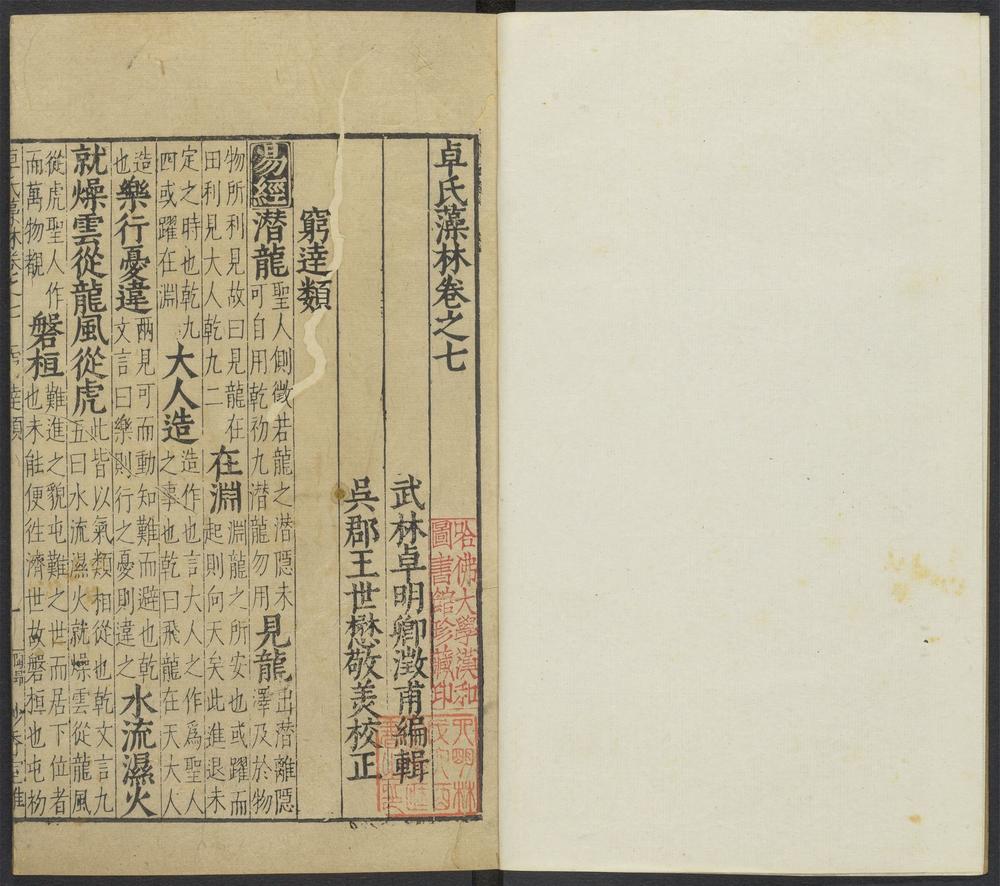 卓氏藻林卷之七
哈佛大學漢和
圖書館珍藏印
武林卓明卿澂甫編輯
吳郡王世懋敬美校正
窮達類
易經潛龍聖人側微若龍之潛隱未可自用乾初九潛龍勿用見龍出潛離隱澤及於物
物所利見故曰見龍在田利見大人乾九二在淵淵龍之所安也或躍而起則向天矣此進退未
定之時也乾九四或躍在淵大人造造作也言大人之作爲聖人之事也乾曰飛龍在天大人
造也樂行憂違兩見可而動知難而避也乾文言曰樂則行之憂則違之水流濕火
就燥雲從龍風從虎此皆以氣類相從也乾文言九五曰水流濕火就燥雲從龍風
從虎聖人作而萬物覩磐桓難進之貌屯難之世而居下位者也未能便徃濟世故磐桓也屯初